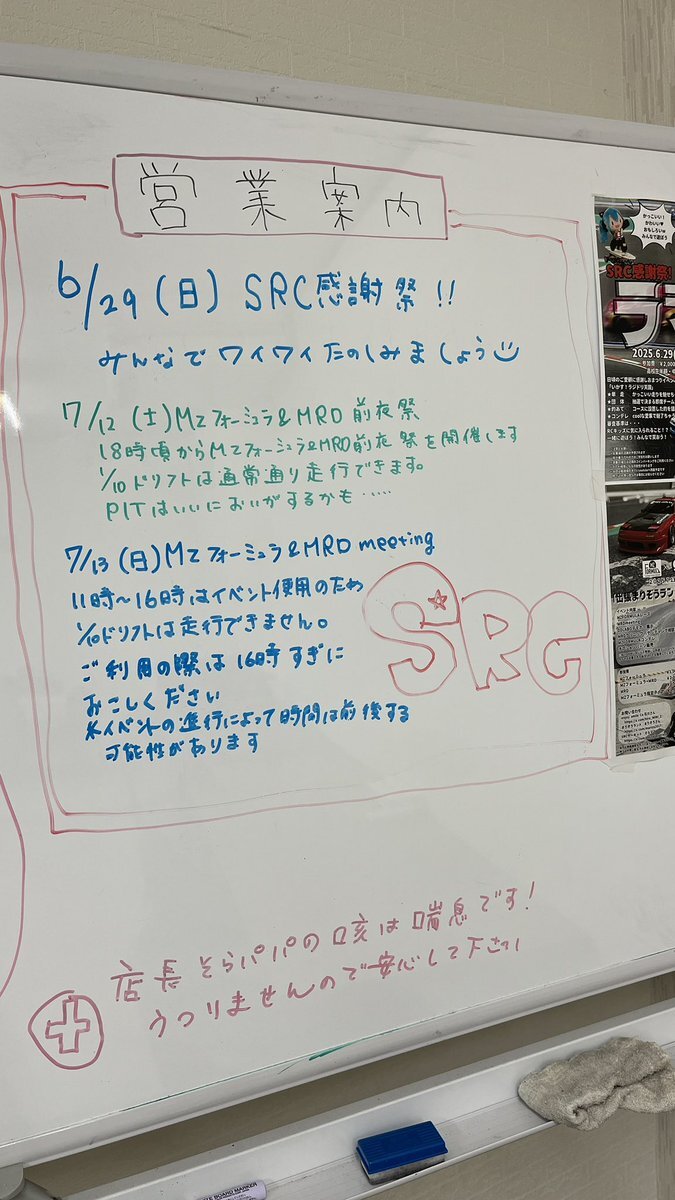 営業案内
6/29(日) SRC感謝祭!!
みんなでワイワイたのしみましょう
7/12 (土) MZフォーミュラ&MRD 前夜祭
18時頃からMZフォーミュラ&MRD前夜祭を開催します
1/10ドリフトは通常通り走行できます。
PITはいいにおいがするかも……
7/13 (日) MZフォーミュラ&MRD meeting
11時~16時はイベント使用のため
1/10ドリフトは走行できません。
ご利用の際は16時すぎに
おこしください
※イベントの進行によって時間は前後する
可能性があります
SRC
店長そらパパの咳は喘息です!
うつりませんので安心して下さい
かっこいい!
かわいい♥
おもしろいw
みんなで遊ぼう
SRC感謝祭!
2025.6.29(
BOARD MARKER